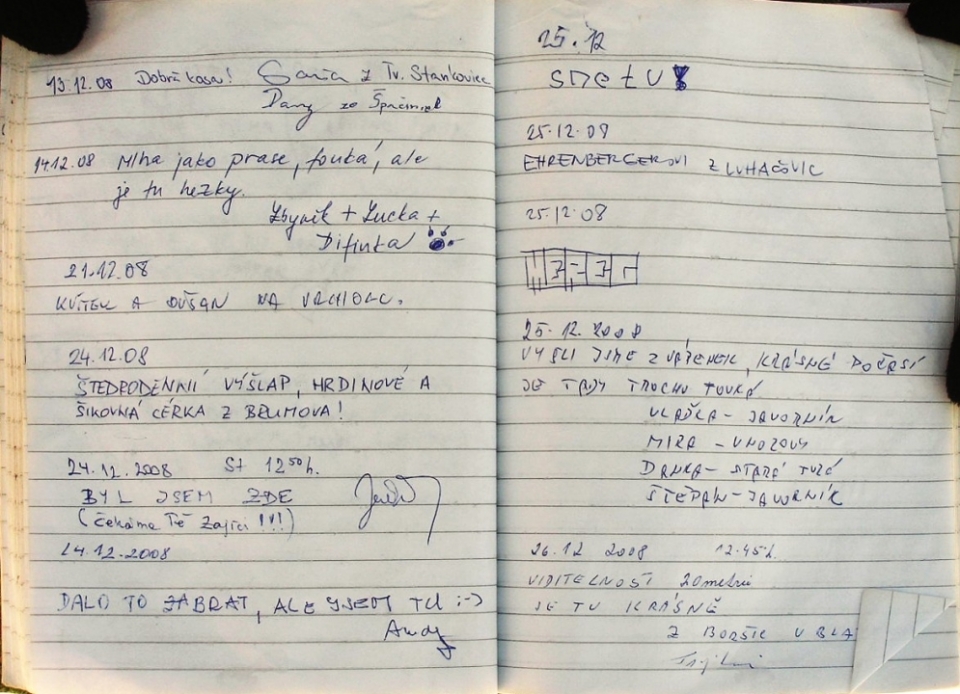 13.12.08 Dobrá kosa! z Tv. Stankoviec
Dany zo
14.12.08 Mlha jako prase, fouká, ale
je tu hezky.
Zbyněk + Lucka +
Difinka
21.12.08
KVÍTEK A DUŠAN NA VRCHOLU.
24.12.08
ŠTEDRODENNÍ VÝŠLAP, HRDINOVÉ A
ŠIKOVNÁ CÉRKA Z BRUMOVA!
24.12.2008 St 12 50 h.
BYL JSEM ZDE
(čekáme Tě Zajíci !!!)
24.12.2008
DALO TO ZABRAT, ALE JSEM TU :-)
Andy
25.12
SME TU!
25.12.08
EHRENBERGEROVI Z LUHAČOVIC
25.12.08
25.12.2008
VYŠLI JSME Z VÁPENEK, KRÁSNÉ POČASÍ
JE TADY TROCHU FOUKÁ
VLAĎKA - JAVORNÍK
MIRA - VNOROVY
DANKA - STARÁ TURÁ
ŠTĚPÁN - JAVORNÍK
26.12 2008 12.45h.
VIDITELNOST 20 metrů
JE TU KRÁSNĚ
Z BORŠIC U BLA